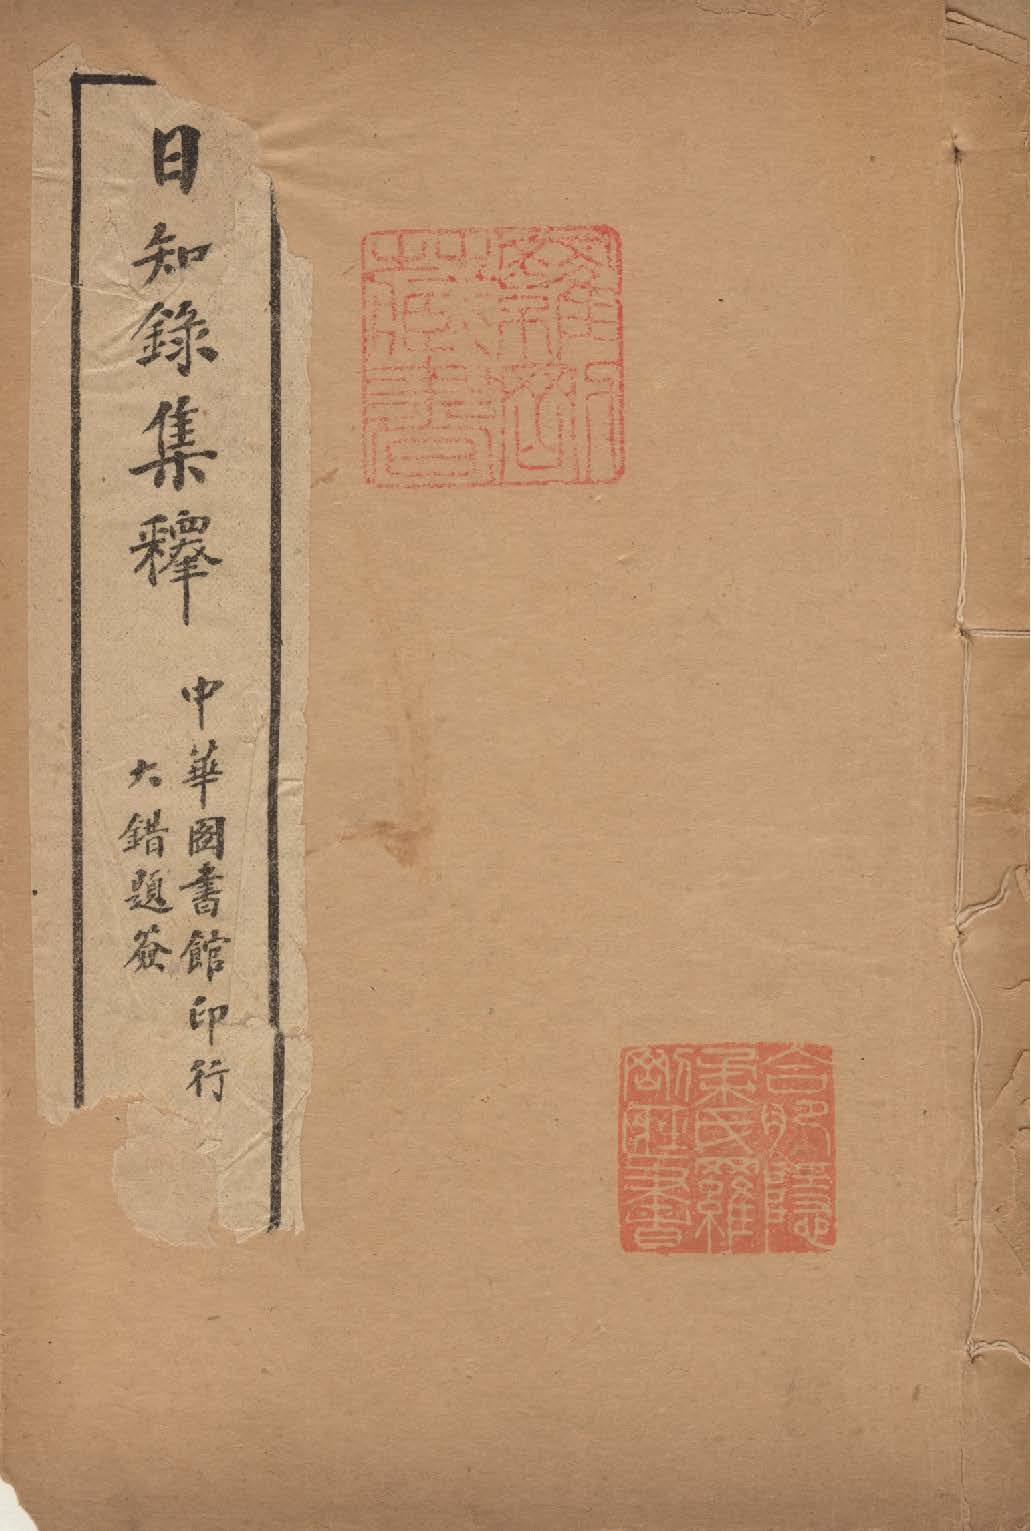 日知錄集釋
中華圖書館印行
大錯題簽
藏書